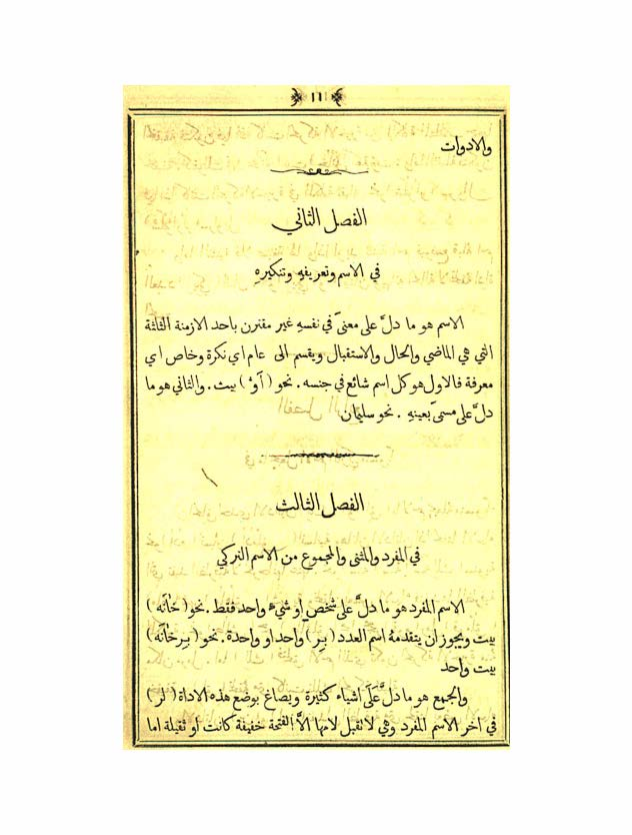 ١١
والادوات
الفصل الثاني
في الاسم وتعريفهِ وتنكيرهِ
الاسم هو ما دلَّ على معنىً في نفسهِ غير مقترن باحد الازمنة الثالثة
التي هي الماضي والحال والاستقبال ويقسم الى عام اي نكرة وخاص اي
معرفة فالاول هو كل اسم شائع في جنسه . نحو ( أَوْ ) بيت . والثاني هو ما
دلَّ على مسمىً بعينهِ . نحو سليمان
الفصل الثالث
في المفرد والمثنى والمجموع من الاسم التركي
الاسم المفرد هو ما دلَّ على شخص او شيءٍ واحد فقط . نحو ( خانه )
بيت ويجوز ان يتقدمه اسم العدد ( بِر ) واحد او واحدة . نحو ( بِرخانه )
بيت واحد
والجمع هو ما دلَّ عَلَى اشياء كثيرة ويصاغ بوضع هذه الاداة ( لر )
في اخر الاسم المفرد وهي لا تقبل لامها الَّا الفتحة خفيفة كانت او ثقيلة اما